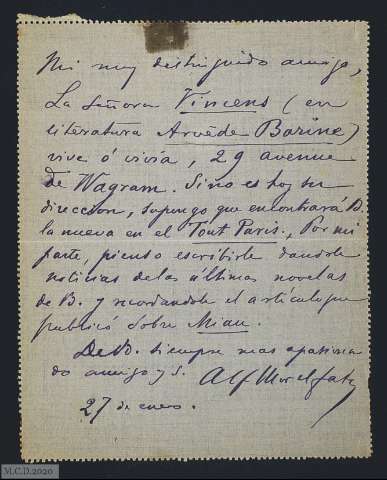 Mi muy distinguido amigo,
La Señora Vincens (en
literatura Arvède Barine)
vive ó vivía, 29 avenue
de Wagram. Si no es hoy su
direccion, supongo que encontrará V.
la nueva en el Tout Paris. Por mi
parte, pienso escribirle dandole
noticias de las últimas novelas
de V. y recordandole el artículo que
publicó sobre Miau.
De V. siempre mas apasiona
do amigo y S. Alf Morel Fatio
27 de enero.
M.C.D.2020